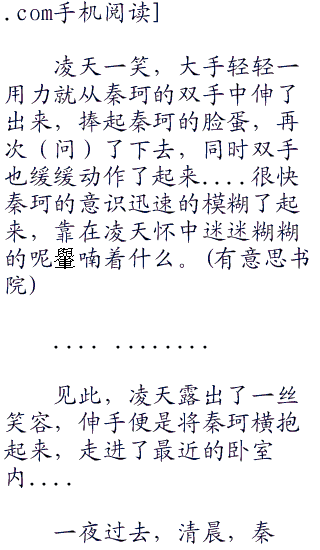 .com手机阅读]
凌天一笑，大手轻轻一
用力就从秦珂的双手中伸了
出来，捧起秦珂的脸蛋，再
次（问）了下去，同时双手
也缓缓动作了起来....很快
秦珂的意识迅速的模糊了起
来，靠在凌天怀中迷迷糊糊
的呢喃着什么。(有意思书
院)
.... ........
见此，凌天露出了一丝
笑容，伸手便是将秦珂横抱
起来，走进了最近的卧室
内....
一夜过去，清晨，秦